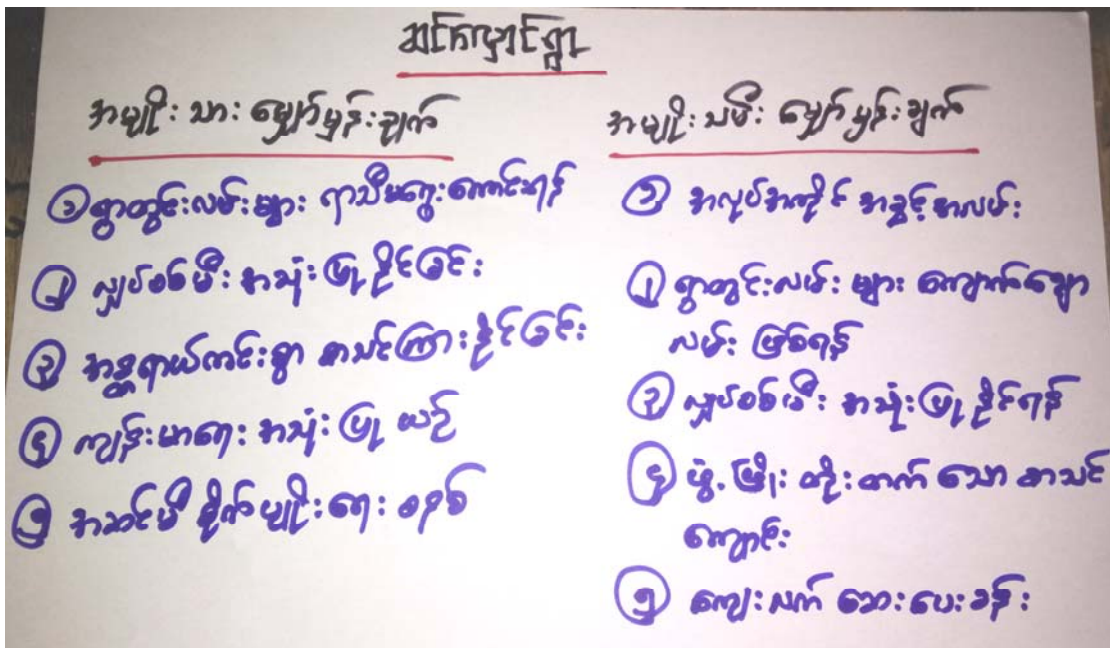 ဆင်ကပုာင်ရွာ
အမျိုးသား မျှော်မှန်းချက်
၁ ရွာတွင်းလမ်းများ ရာသီမရွေးကောင်းရန်
၂ လျှပ်စစ်မီး အသုံးပြုနိုင်ခြင်း
၃ အန္တရာယ်ကင်းစွာ စာသင်ကြားနိုင်ခြင်း
၄ ကျန်းမာရေး အသုံးပြုယဉ်
၅ အဆင်မီ စိုက်ပျိုးရေး စနစ်
အမျိုးသမီး မျှော်မှန်းချက်
၁ အလုပ်အကိုင် အခွင့်အလမ်း
၂ ရွာတွင်းလမ်းများ ကျောက်ချော
လမ်း ဖြစ်ရန်
၃ လျှပ်စစ်မီး အသုံးပြုနိုင်ရန်
၄ ဖွံ့ဖြိုးတိုးတက်သော စာသင်
ကျောင်း
၅ ကျေးလက် ဆေးပေးခန်း